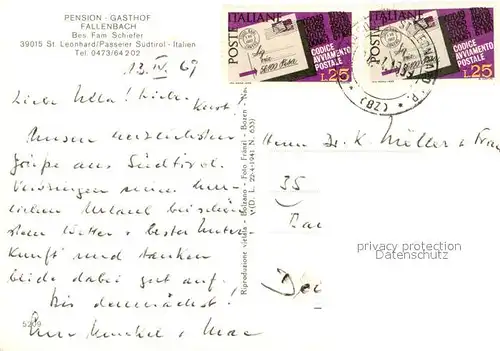 PENSION - GASTHOF
FALLENBACH
Bes. Fam Schiefer
39015 St Leonhard/Passeier Südtirol - Italien
Tel. 0473/64202
13. IV. 69
Liebe Ulla! Lieber Kurt!
Unsere herzlichsten
Grüße aus Südtirol.
Verbringen einen herr-
lichen Urlaub bei schön-
stem Wetter + bester Unter-
kunft und tanken
beide dabei gut auf.
Bis demnächst!
Eure
5209
Riproduzione vietata - Bolzano - Foto Fränzl - Bozen - No.
V(D. L. 22-4-1941 N. 633)
POSTE ITALIANE
CODICE
AVVIAMENTO
POSTALE
L.25
POSTE ITALIANE
CODICE
AVVIAMENTO
POSTALE
L.25
(BZ)
Herrn Dr. K. Müller + Frau
35
privacy protection
DATENSCHUTZ